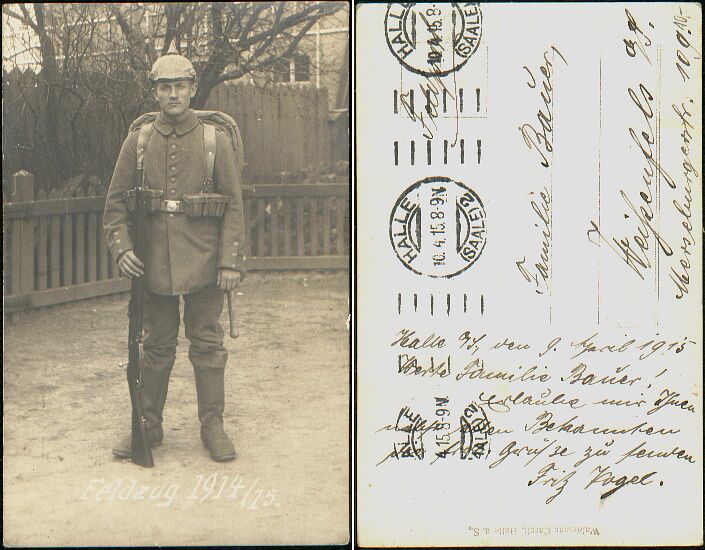 Feldzug 1914/15.
HALLE
10.4.15.8-9N
(SAALE)2
Familie Bauer,
Weißenfels a/S.
Merseburgerstr. 109
HALLE
10.4.15.8-9N
(SAALE)2
Halle a/S, den 9. April 1915
Werte Familie Bauer!
Erlaube mir Ihnen
den Bekannten
Grüße zu senden
Fritz Vogel.
HALLE
4.15.8-9N
(SAALE)2
Waldemar Halle a. S.,